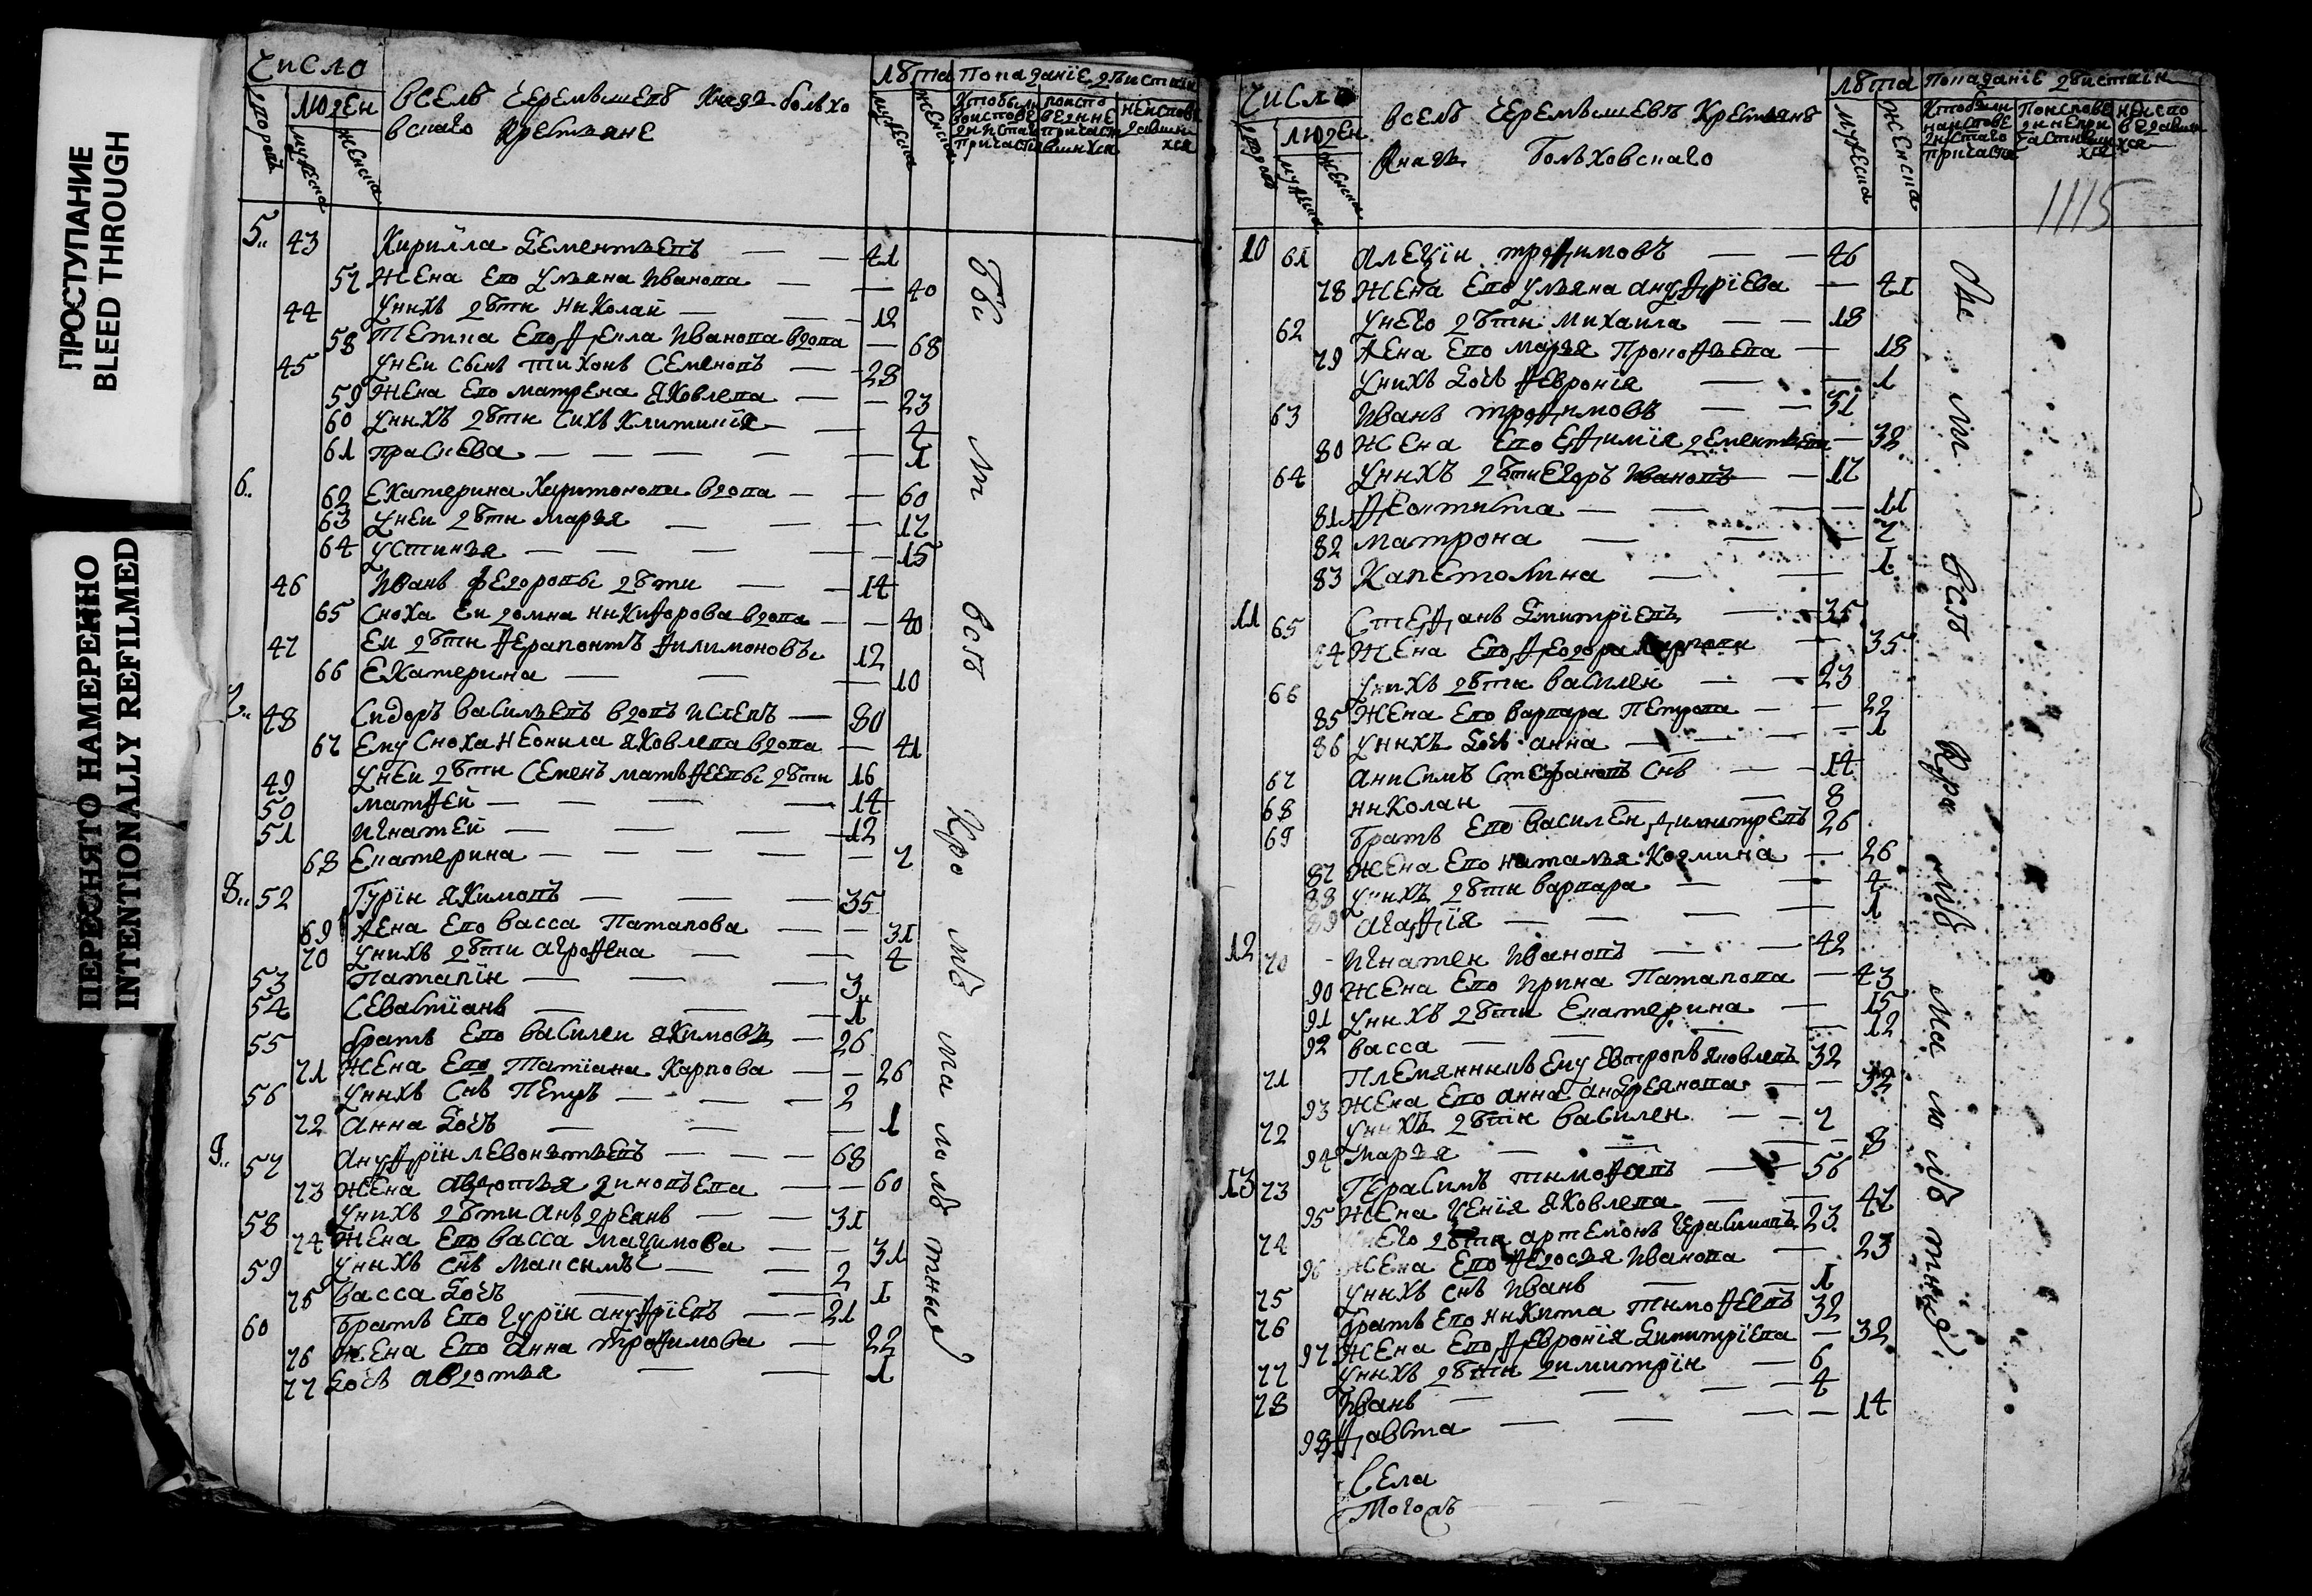 ПРОСТУПАНИЕ
BLEED THROUGH
ПЕРЕСНЯТО НАМЕРЕННО
INTENTIONALLY REFILMED
Число
людей
двороⷡ
мужеска
женска
Вселѣ Черемышевѣ Князя болхо
вскаго крестьяне
лѣта
мужеска
женска
Показанїе дѣйствїй
5 43 Кирилла Дементьевъ 41
57 жена его ульяна Иванова 40
44 унихъ дѣти николай 12
58 тетка его Фекла Иванова вдова 68
45 унеи сынъ тихонъ Семеновъ 28
59 жена его матрена яковлева 23
60 унихъ дѣти сихъ клитикия 4
61 прасковa 1
6 62 екатерина харитонова вдова 60
63 унеи дѣти марья 17
64 устинья 15
46 Иванъ федоровы дѣти 14
65 сноха еи домна никифорова вдова 40
47 еи дѣти Ферапонтъ Филимоновъ 12
66 екатерина 10
7 48 Сидоръ васильевъ вдовъ 80
67 ему сноха неонила яковлева вдова 41
49 унеи дѣти семенъ матѳеевы дѣти 16
50 матѳей 14
51 игнатей 12
68 екатерина 7
8 52 Гурїй якимовъ 35
69 жена его васса патапова 31
70 унихъ дѣти аграфена 4
53 патапїй 3
54 севастїанъ 1
55 братъ его василеи якимовъ 26
71 жена его татїана карпова 26
56 унихъ снъ петръ 2
72 анна дочь 1
9 57 ануфрїй левонтьевъ 68
73 жена авдотья зиновьева 60
58 унихъ дѣти андреянъ 31
74 жена его васса макимова 31
59 унихъ снъ максимъ 2
75 васса дочь 1
60 братъ его гурїй ануфрїевъ 21
76 жена его анна трофимова 22
77 дочь авдотья 1
Число
людей
Вселѣ Черемышевѣ крестьянѣ
Князя Болховскаго
лѣта
мужеска
женска
Показанїе дѣйствїй
1115
10 61 алексїй трофимовъ 46
78 жена его ульяна ануфрїева 41
62 унего дѣти михаила 18
79 жена его марья прокофьева 18
унихъ дочь Февронїя 1
63 Иванъ трофимовъ 31
80 жена его ефимїя дементьева 38
64 унихъ дѣти егоръ ивановъ 17
81 Феоктиста 11
82 матрона 7
83 капетолина 1
11 65 Стефанъ Дмитрїевъ 35
84 жена его Феодора карпова 35
66 унихъ дѣти василей 23
85 жена его варвара петрова 22
86 унихъ дочь анна 1
67 анисимъ стефановъ снъ 14
68 николаи 8
69 братъ его василеи димитревъ 26
87 жена его наталья козмина 26
88 унихъ дѣти варвара 4
89 агафїя 1
12 70 Игнатеи Ивановъ 42
90 жена его ирина патапова 43
91 унихъ дѣти екатерина 15
92 васса 12
71 племянникъ ему евтропъ яковлевъ 32
93 жена его анна андреянова 32
72 унихъ дѣтїи василеи 7
94 марья 8
13 73 Герасимъ тимофѣевъ 56
95 жена ксенїя яковлева 47
74 унего дѣти артемонъ герасимовъ 23
96 жена его Федосья иванова 23
75 унихъ снъ иванъ 1
76 братъ его никита тимофеевъ 32
97 жена его Февронїя димитрїева 32
77 унихъ дѣти димитрїи 6
78 Иванъ 4
98 Фавста 14
села
тогожъ